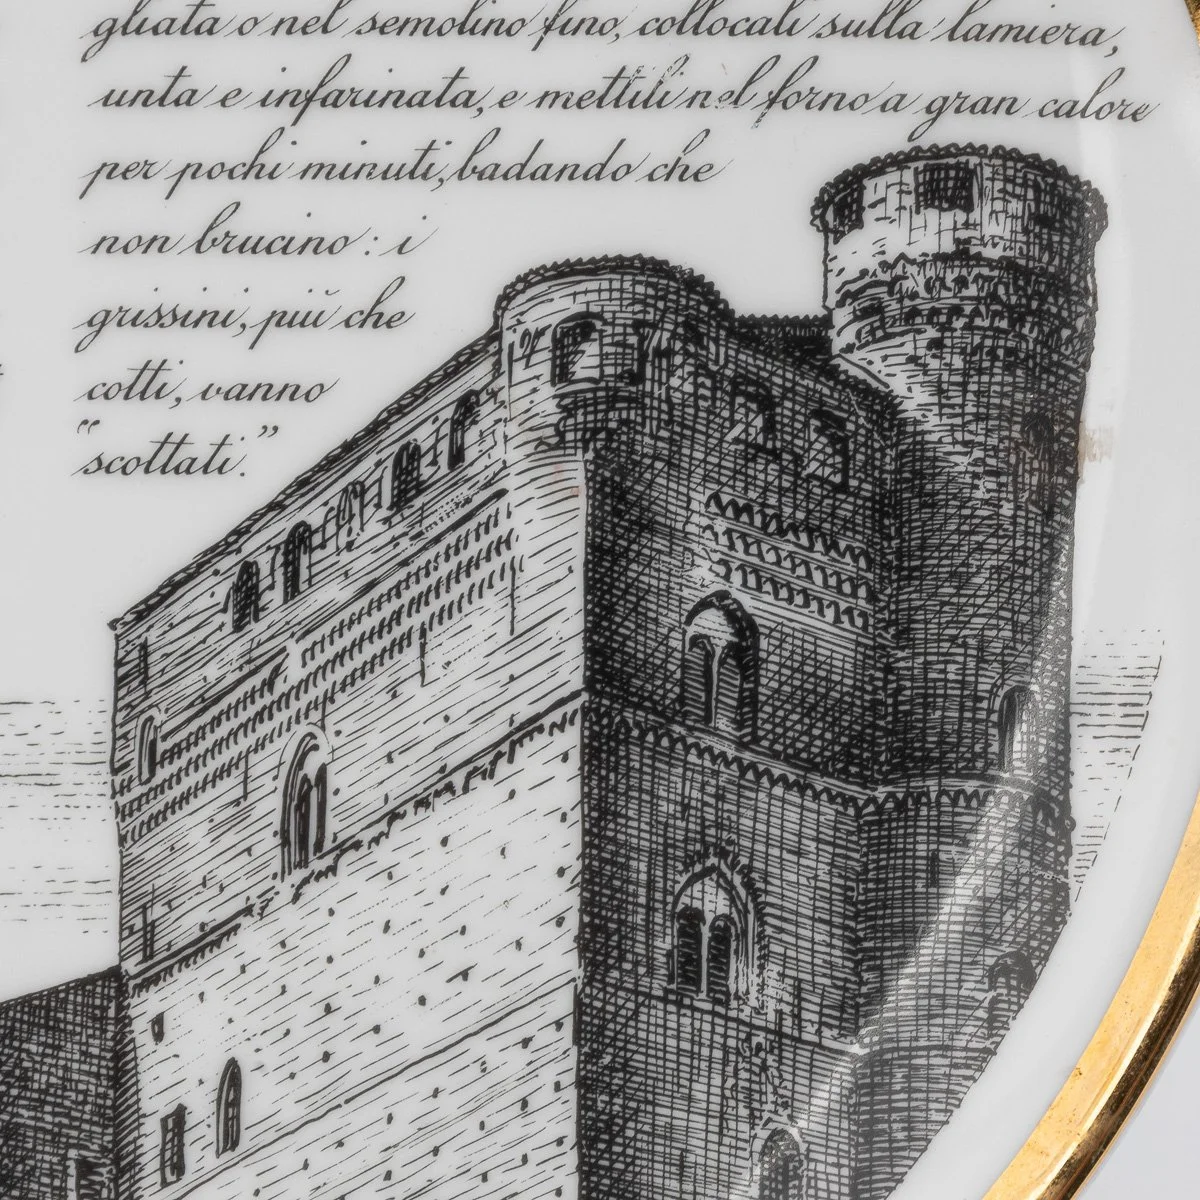 gliata o nel semolino fino, collocali sulla lamiera,
unta e infarinata, e mettili nel forno a gran calore
per pochi minuti, badando che
non brucino: i
grissini, più che
cotti, vanno
“scottati.”